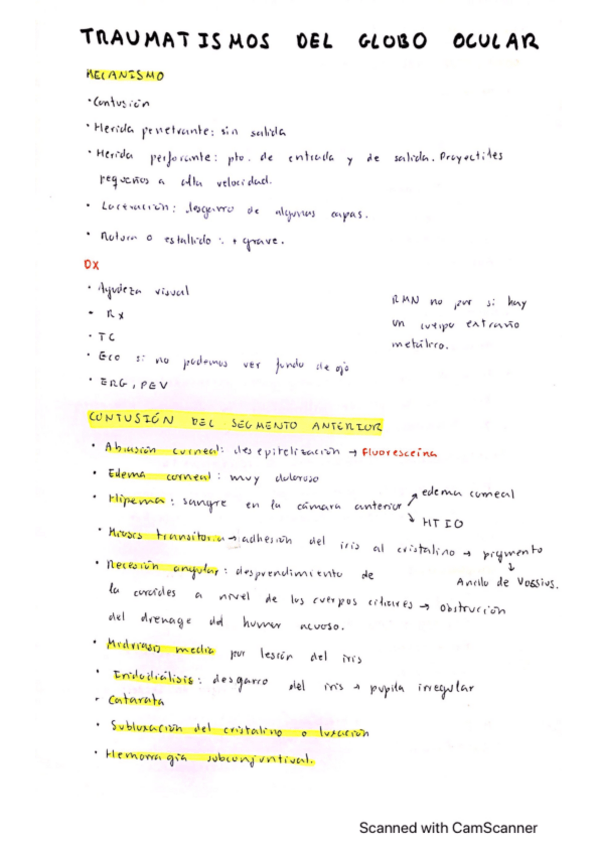 TRAUMATISMOS DEL GLOBO OCULAR
MECANISMO
• Contusión
• Herida penetrante: sin salida
• Herida perforante: pto. de entrada y de salida. Proyectiles
pequeños a alta velocidad.
• Laceración: desgarro de algunas capas.
• Rotura o estallido: + grave.
DX
• Agudeza visual
• Rx
• TC
• Eco si no podemos ver fundo de ojo
• ERG, PEV
RMN no por si hay
un cuerpo extraño
metálico.
CONTUSIÓN DEL SEGMENTO ANTERIOR
• Abrasión corneal: desepitelización → Fluoresceína
• Edema corneal: muy doloroso
• Hipema: sangre en la cámara anterior ↗ edema corneal
↘ HTIO
• Miosis transitoria → adhesión del iris al cristalino → pigmento
↓
Anillo de Vossius.
• Recesión angular: desprendimiento de
la coroides a nivel de los cuerpos ciliares → obstrucción
del drenage del humor acuoso.
• Midriasis media por lesión del iris
• Iridodiálisis: desgarro del iris → pupila irregular
• Catarata
• Subluxación del cristalino o luxación
• Hemorragia subconjuntival.
Scanned with CamScanner